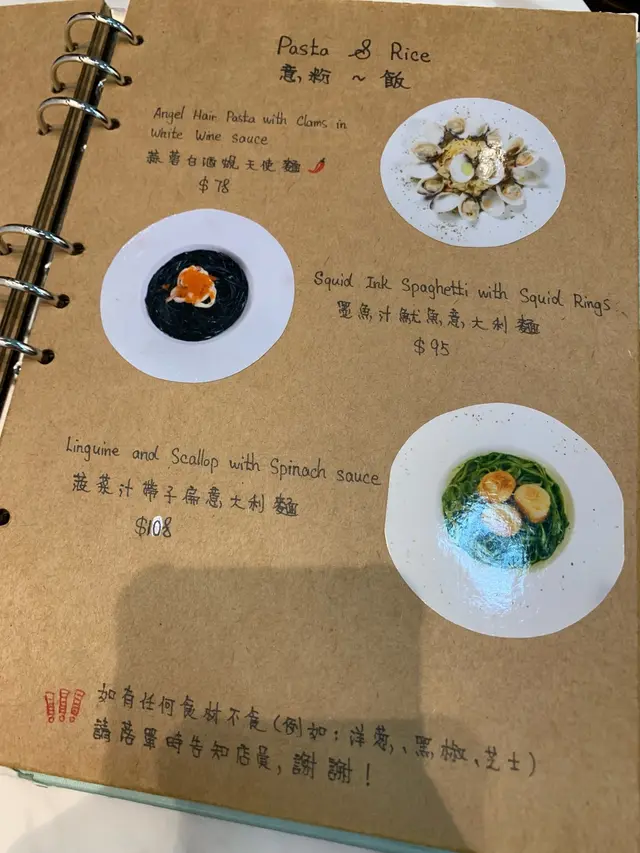 Pasta & Rice
意粉 ~ 飯
Angel Hair Pasta with Clams in
White Wine sauce
蒜蓉白酒蜆天使麵
$78
Squid Ink Spaghetti with Squid Rings
墨魚汁魷魚意大利麵
$95
Linguine and Scallop with Spinach sauce
菠菜汁帶子扁意大利麵
$108
!!! 如有任何食材不食(例如：洋蔥、黑椒、芝士)
請落單時告知店員，謝謝！